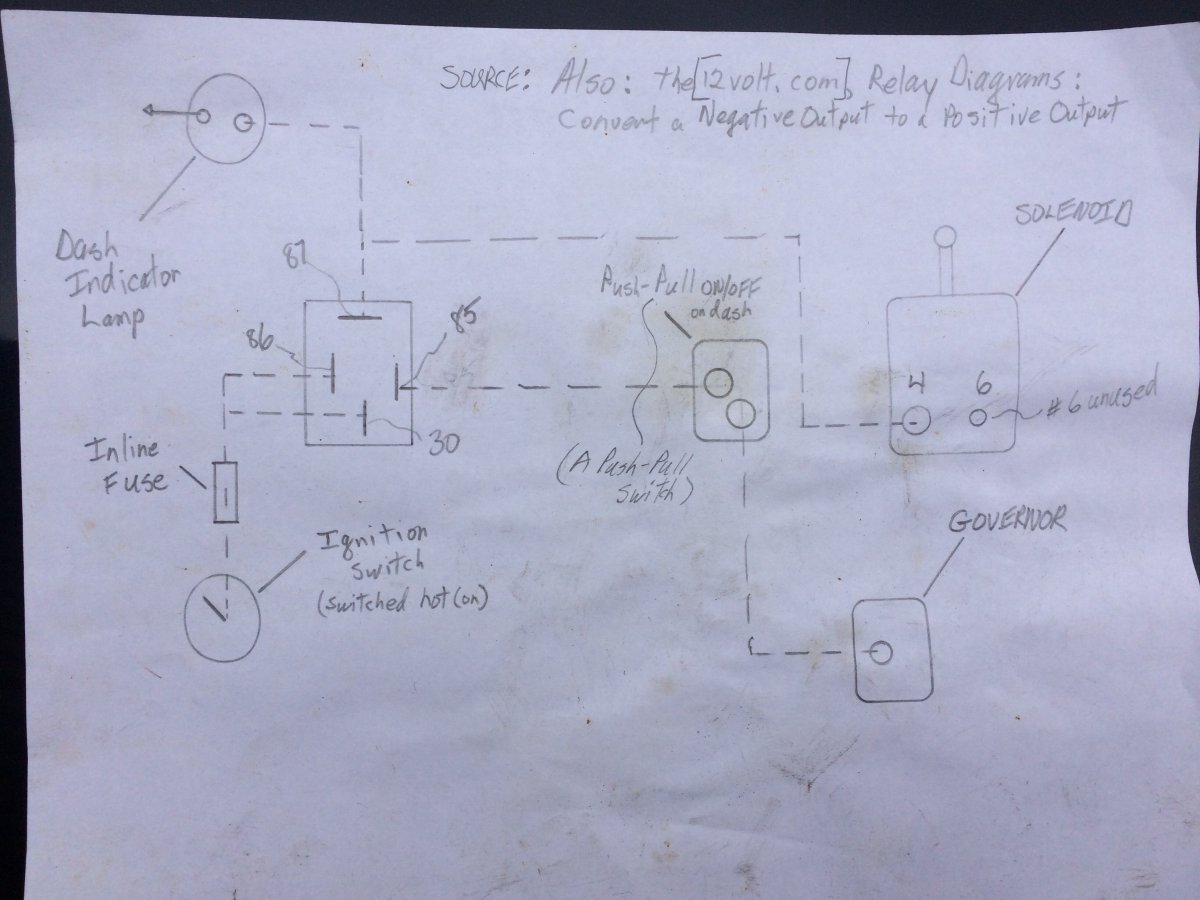 SOURCE: Also: the[12volt.com], Relay Diagrams:
Convert a Negative Output to a Positive Output
SOLENOID
Dash
Indicator
Lamp
87
86
85
30
Push-Pull ON/OFF
on dash
(A Push-Pull
Switch)
4 6
#6 unused
Inline
Fuse
Ignition
Switch
(switched hot (on)
GOVERNOR